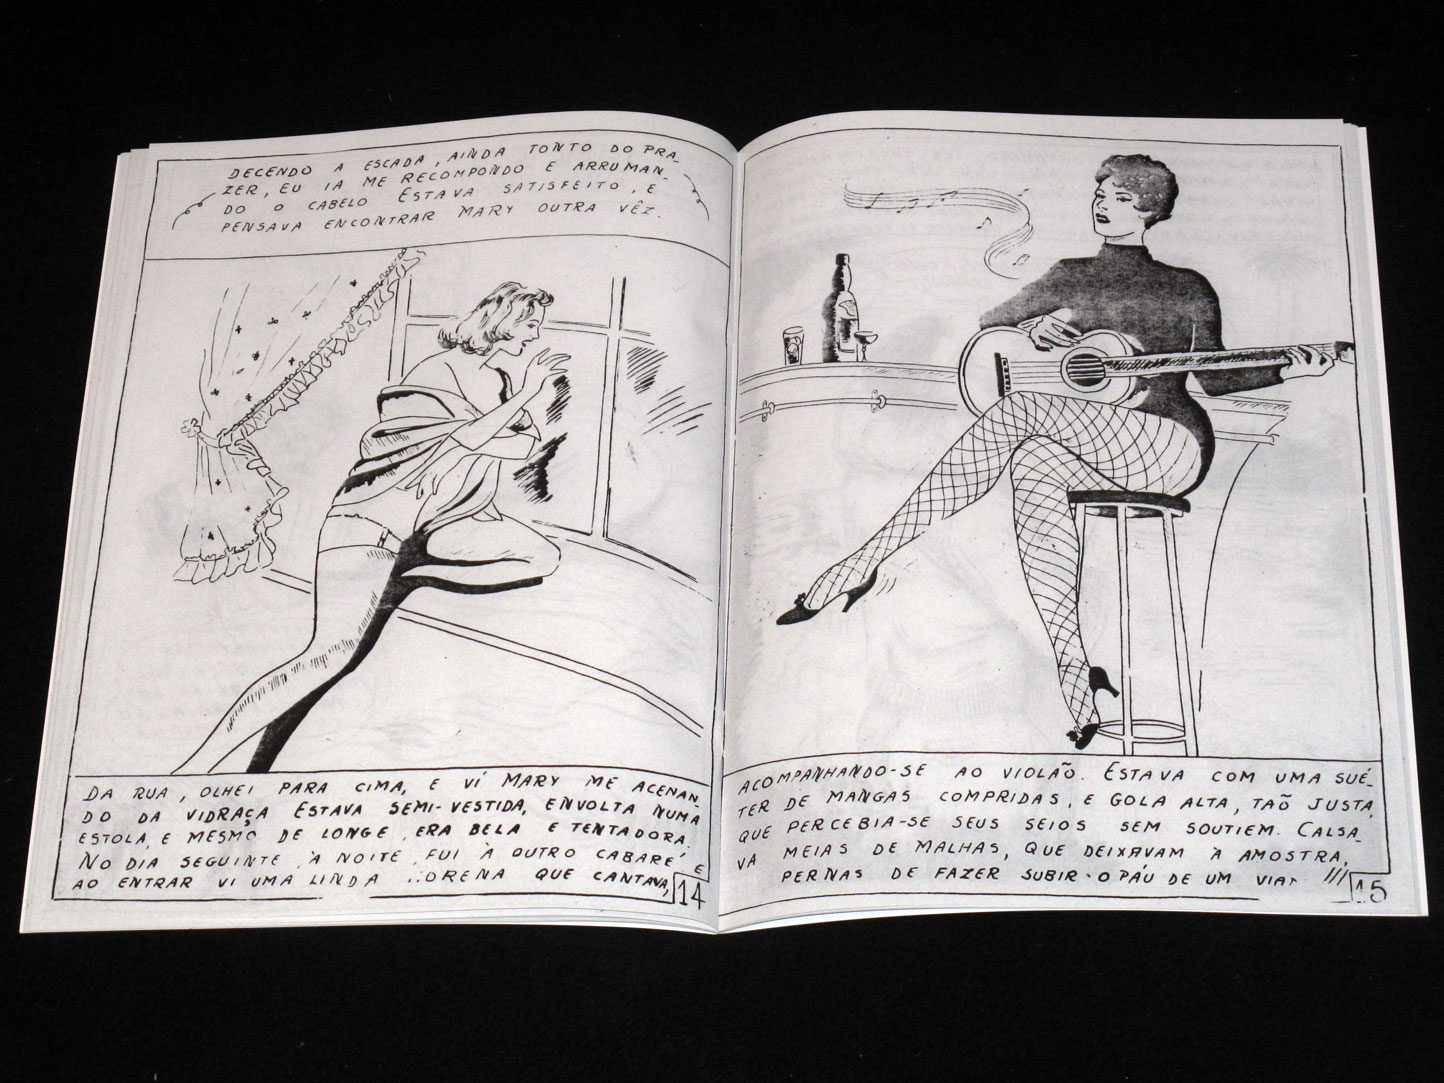 DECENDO A ESCADA, AINDA TONTO DO PRA-
ZER, EU IA ME RECOMPONDO E ARRUMAN-
DO O CABELO ESTAVA SATISFEITO, E
PENSAVA ENCONTRAR MARY OUTRA VÊZ.
DA RUA, OLHEI PARA CIMA, E VÍ MARY ME ACENAN-
DO DA VIDRAÇA ESTAVA SEMI-VESTIDA, ENVOLTA NUMA
ESTOLA, E MESMO DE LONGE, ERA BELA E TENTADORA.
NO DIA SEGUINTE, À NOITE, FUI À OUTRO CABARÉ E
AO ENTRAR VI UMA LINDA MORENA QUE CANTAVA,
14
ACOMPANHANDO-SE AO VIOLAÕ. ESTAVA COM UMA SUÉ-
TER DE MANGAS COMPRIDAS, E GOLA ALTA, TAÕ JUSTA,
QUE PERCEBIA-SE SEUS SEIOS SEM SOUTIEM. CALSA-
VA MEIAS DE MALHAS, QUE DEIXAVAM À AMOSTRA,
PERNAS DE FAZER SUBIR O PÁU DE UM
15